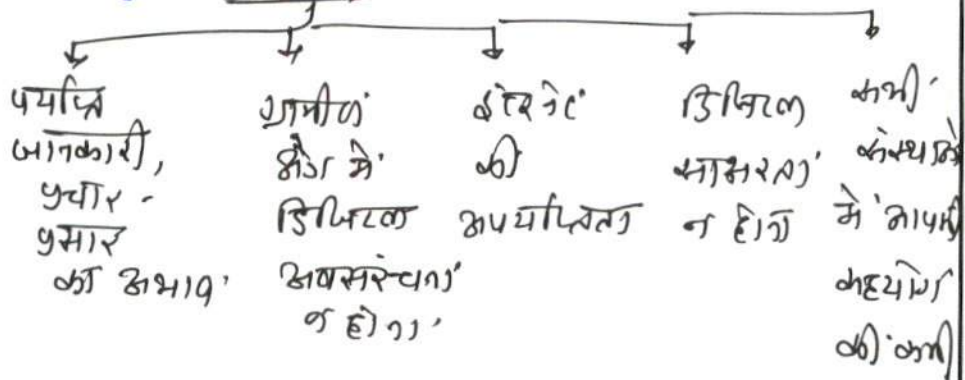 पर्याप्त
जानकारी,
प्रचार -
प्रसार
का अभाव
ग्रामीण
क्षेत्र में
डिजिटल
अवसंरचना
न होना
इंटरनेट
की
अपर्याप्तता
डिजिटल
साक्षरता
न होना
सभी
संस्थानों
में आपसी
सहयोग
की कमी